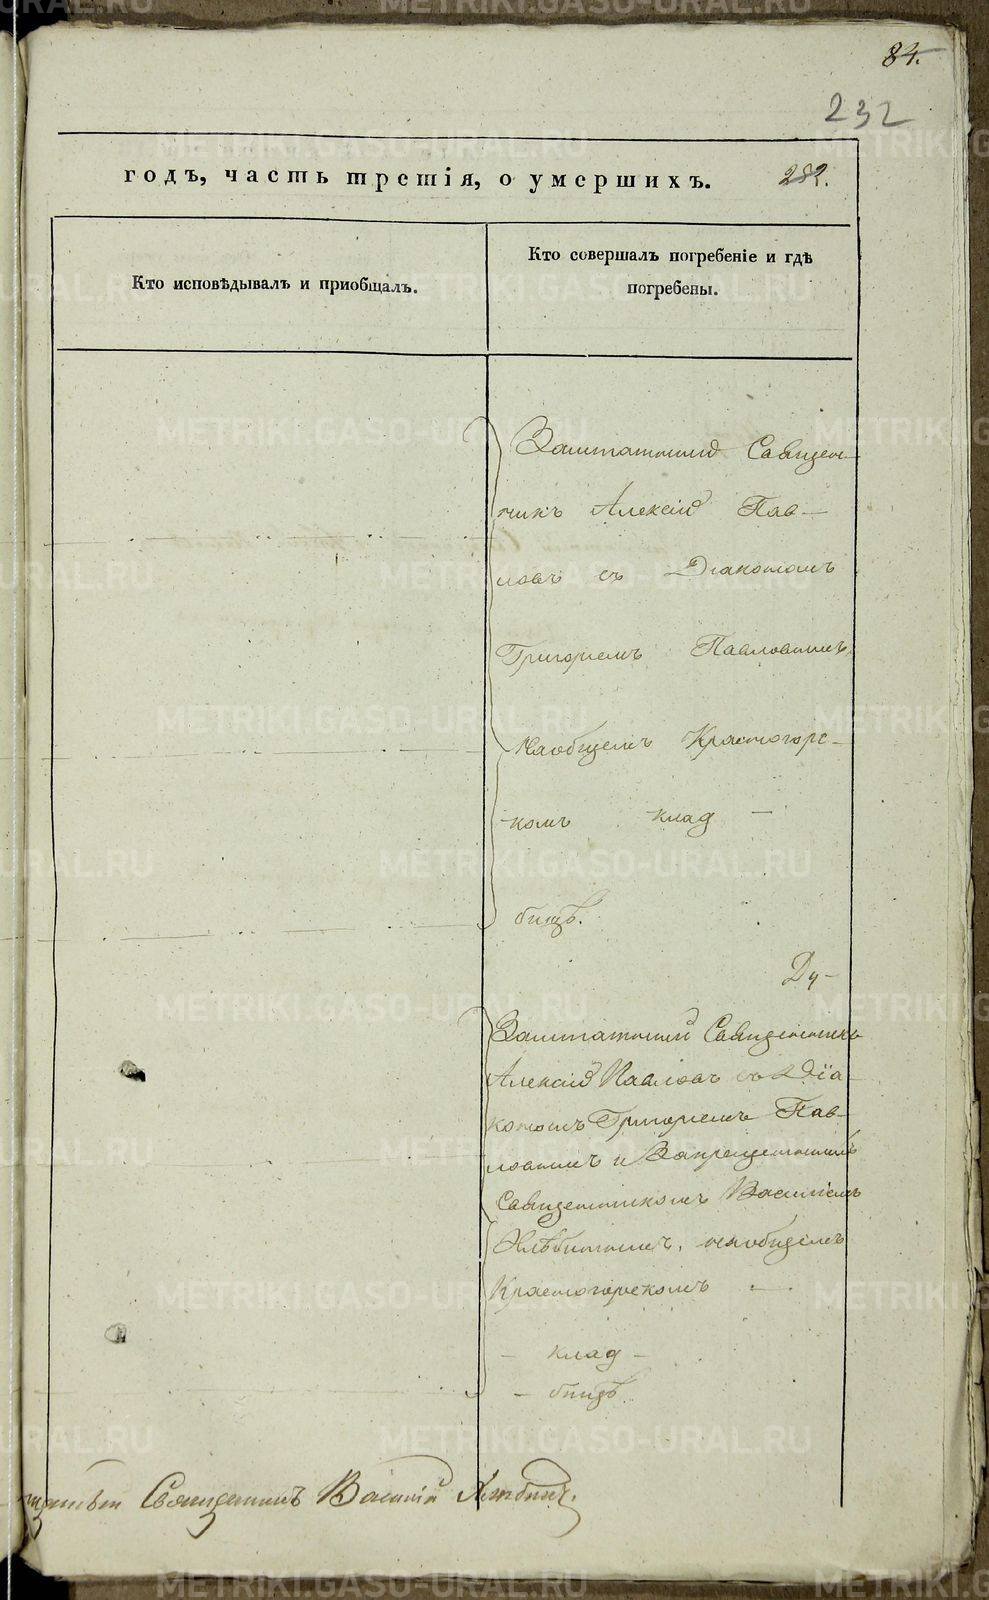 84.
232
годъ, часть третія, о умершихъ.
282.
Кто исповѣдывалъ и приобщалъ.
Кто совершалъ погребеніе и гдѣ
погребены.
Заштатный Священ-
никъ Алексій Пав-
ловъ съ Діакономъ
Григоріемъ Павловымъ
На общемъ Красногорс-
комъ клад-
бищѣ.
Ду-
Заштатный Священникъ
Алексій Павловъ съ Діа-
кономъ Григоріемъ Пав-
ловымъ и Запрещеннымъ
Священникомъ Василіемъ
Хлѣбинымъ, на общемъ
Красногорскомъ -
- клад -
- бищѣ.
Священникъ Василій Хлѣбинъ.
METRIKI.GASO-URAL.RU